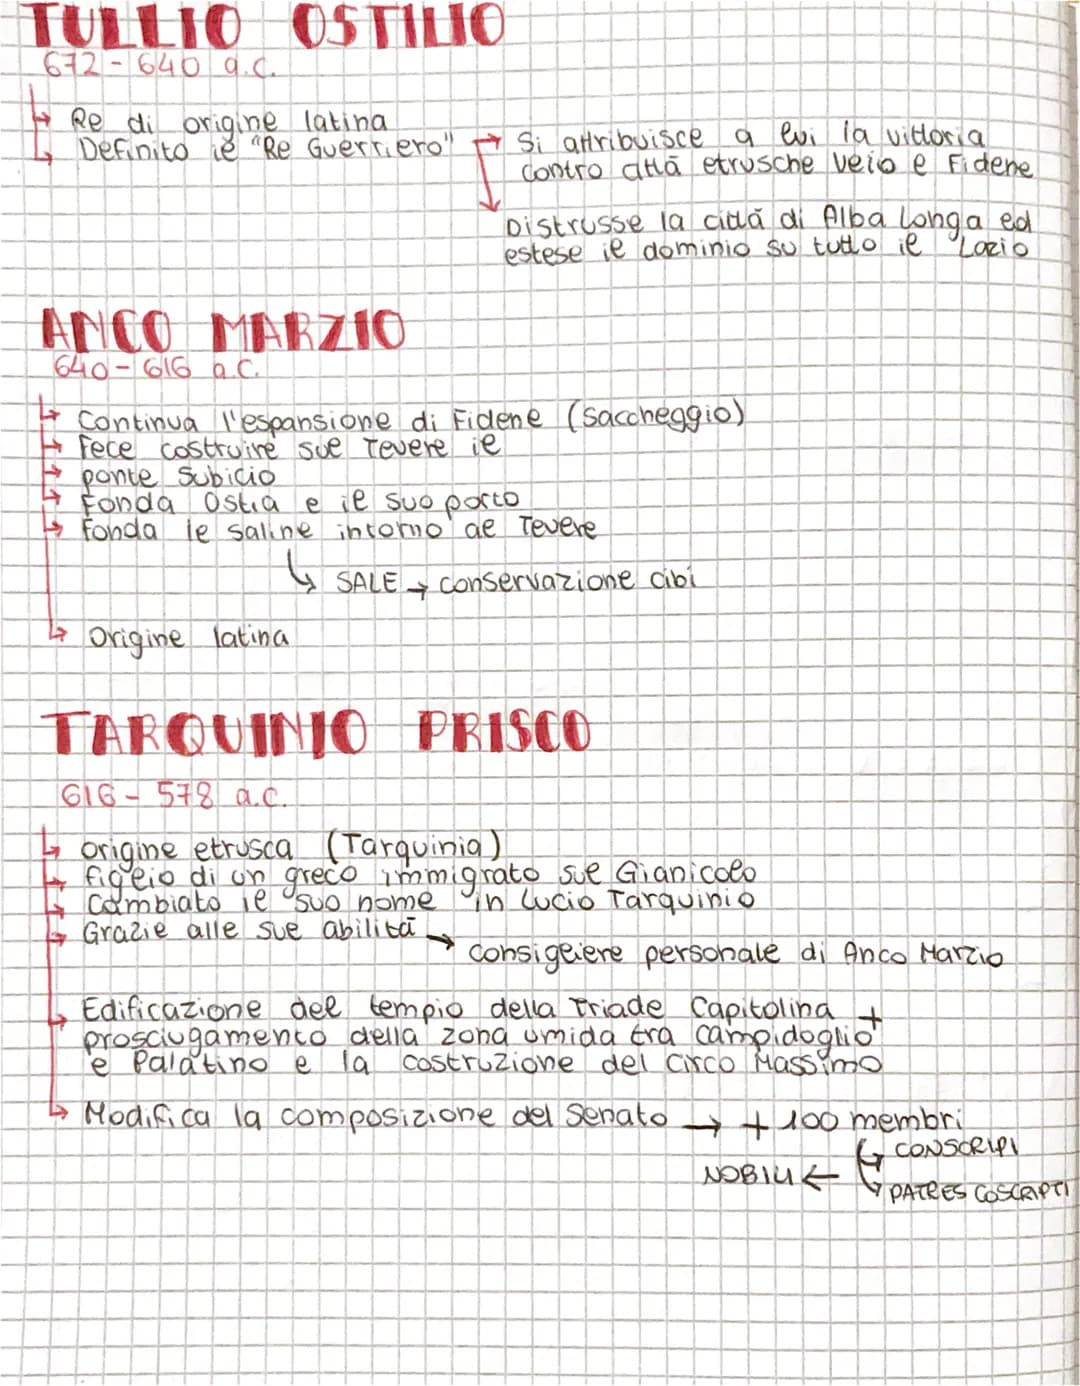 TULLIO OSTILIO
672-640 a.C.
Re di origine latina
Definito il "Re Guerriero"
Si attribuisce a lui la vittoria
contro città etrusche Veio e Fidene
Distrusse la città di Alba Longa ed
estese il dominio su tutto il Lazio
ANCO MARZIO
640-616 a.C.
Continua l'espansione di Fidene (saccheggio)
Fece costruire sul Tevere il
ponte Subicio
Fonda Ostia e il suo porto
Fonda le saline intorno al Tevere
SALE → conservazione cibi
Origine latina
TARQUINIO PRISCO
616-578 a.C.
origine etrusca (Tarquinia)
figlio di un greco immigrato sul Gianicolo
Cambiato il suo nome in Lucio Tarquinio
Grazie alle sue abilità →
consigliere personale di Anco Marzio
Edificazione del tempio della Triade Capitolina +
prosciugamento della zona umida tra Campidoglio
e Palatino e la costruzione del Circo Massimo
Modifica la composizione del Senato → + 100 membri
CONSCRIPI
NOBILI ←
PATRES COSCRIPTI